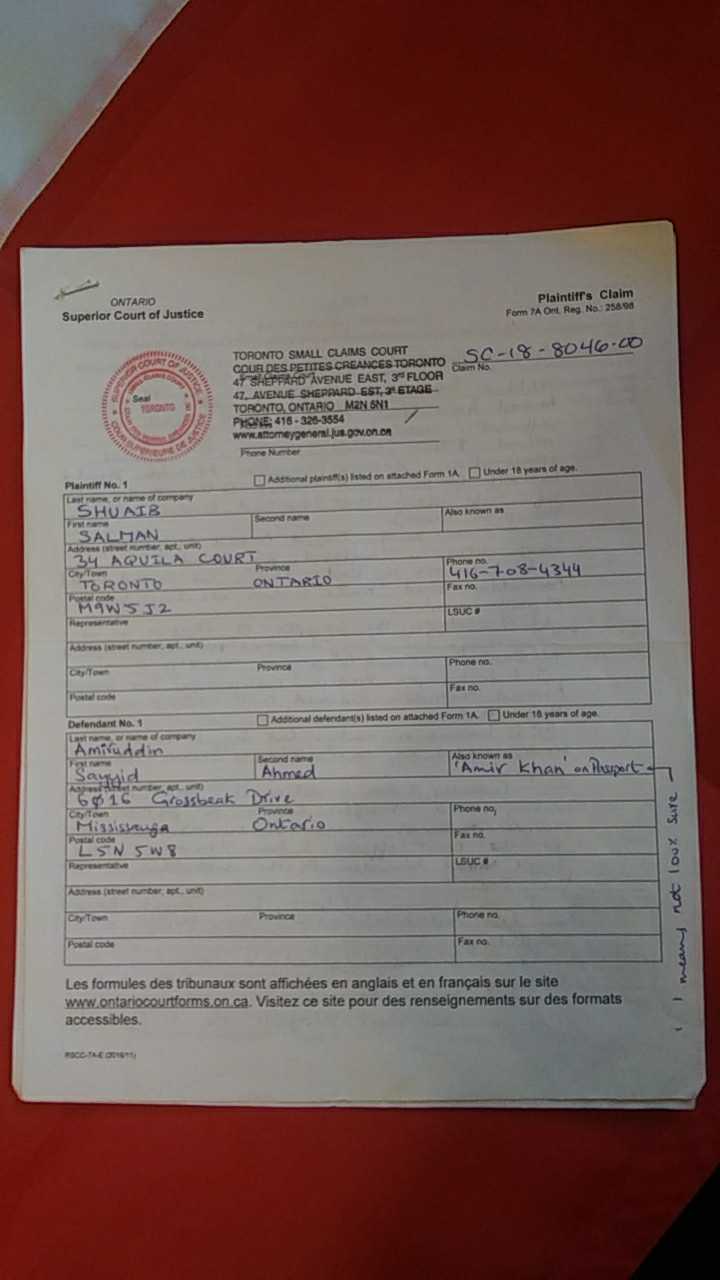 ONTARIO
Superior Court of Justice
Plaintiff's Claim
Form 7A Ont. Reg. No.: 258/98
SUPERIOR COURT OF JUSTICE
SMALL CLAIMS COURT
Seal
TORONTO
COUR SUPÉRIEURE DE JUSTICE
TORONTO SMALL CLAIMS COURT
COUR DES PETITES CREANCES TORONTO
47 SHEPPARD AVENUE EAST, 3RD FLOOR
47, AVENUE SHEPPARD EST, 3E ETAGE
TORONTO, ONTARIO M2N 5N1
PHONE: 416 - 326-3554
www.attorneygeneral.jus.gov.on.ca
Phone Number
SC-18-8046-00
Claim No.
Plaintiff No. 1
Additional plaintiff(s) listed on attached Form 1A.
Under 18 years of age.
Last name, or name of company
SHUAIB
First name
Second name
Also known as
SALMAN
Address (street number, apt., unit)
34 AQUILA COURT
City/Town
Province
Phone no.
TORONTO
ONTARIO
416-708-4344
Postal code
Fax no.
M9W5J2
Representative
LSUC #
Address (street number, apt., unit)
City/Town
Province
Phone no.
Postal code
Fax no.
Defendant No. 1
Additional defendant(s) listed on attached Form 1A.
Under 18 years of age.
Last name, or name of company
Amiruddin
First name
Second name
Also known as
Sayyid
Ahmed
'Amir Khan' on Passport
Address (street number, apt., unit)
6016 Grossbeak Drive
City/Town
Province
Phone no.
Mississauga
Ontario
Postal code
Fax no.
L5N 5W8
Representative
LSUC #
Address (street number, apt., unit)
City/Town
Province
Phone no.
Postal code
Fax no.
means not 100% sure
Les formules des tribunaux sont affichées en anglais et en français sur le site
www.ontariocourtforms.on.ca. Visitez ce site pour des renseignements sur des formats
accessibles.